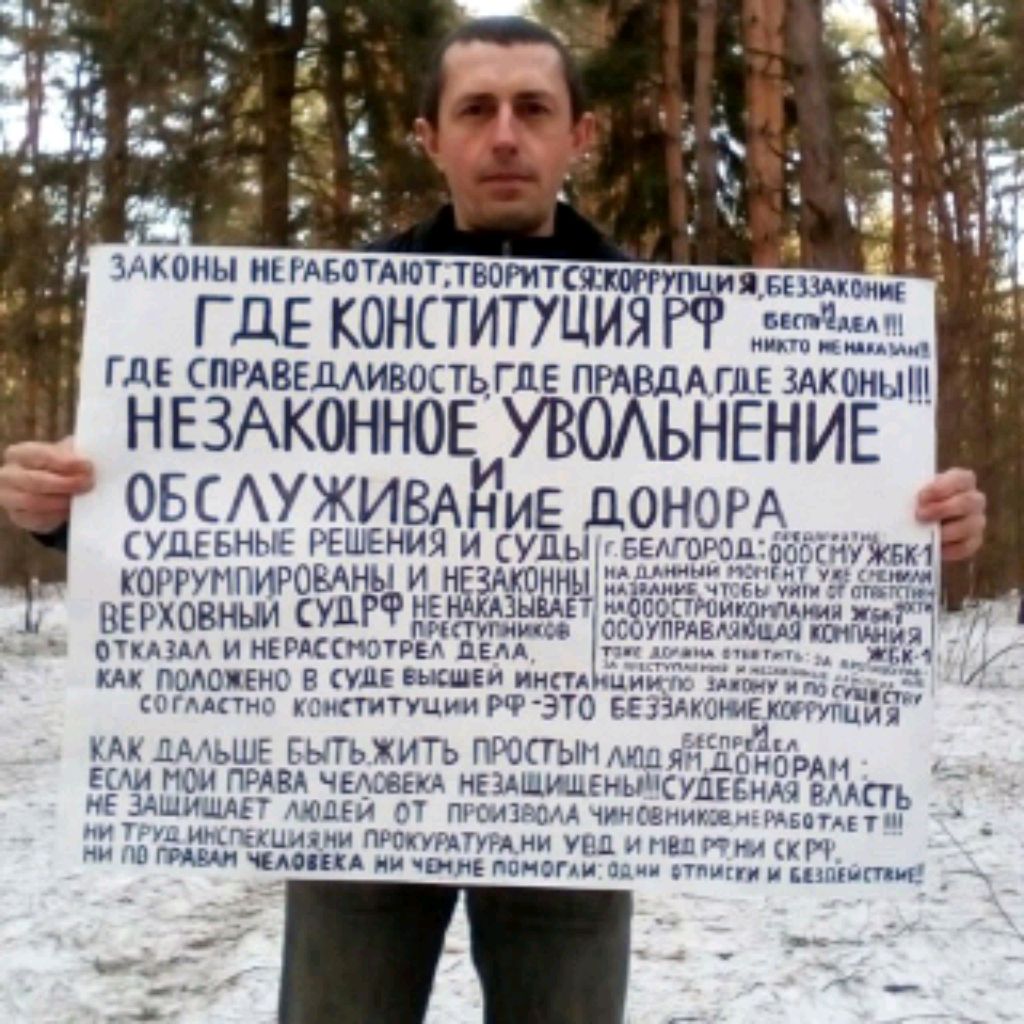 ЗАКОНЫ НЕРАБОТАЮТ, ТВОРИТСЯ: КОРРУПЦИЯ, БЕЗЗАКОНИЕ
И
БЕСПРЕДЕЛ !!!
НИКТО НЕ НАКАЗАН!!
ГДЕ КОНСТИТУЦИЯ РФ
ГДЕ СПРАВЕДЛИВОСТЬ, ГДЕ ПРАВДА, ГДЕ ЗАКОНЫ!!!
НЕЗАКОННОЕ УВОЛЬНЕНИЕ
И
ОБСЛУЖИВАНИЕ ДОНОРА
СУДЕБНЫЕ РЕШЕНИЯ И СУДЫ
КОРРУМПИРОВАНЫ И НЕЗАКОННЫ
ВЕРХОВНЫЙ СУД РФ НЕ НАКАЗЫВАЕТ
ПРЕСТУПНИКОВ
ОТКАЗАЛ И НЕРАССМОТРЕЛ ДЕЛА,
ПРЕДПРИЯТИЕ:
г. БЕЛГОРОД: ООО СМУ ЖБК-1
НА ДАННЫЙ МОМЕНТ УЖЕ СМЕНИЛИ
НАЗВАНИЕ, ЧТОБЫ УЙТИ ОТ ОТВЕТСТВЕН
НОСТИ
НА ООО СТРОЙКОМПАНИЯ ЖБК-1
ООО УПРАВЛЯЮЩАЯ КОМПАНИЯ
ЖБК-1
ТОЖЕ ДОЛЖНА ОТВЕТИТЬ: ЗА
ЗА ПРЕСТУПЛЕНИЯ И
КАК ПОЛОЖЕНО В СУДЕ ВЫСШЕЙ ИНСТАНЦИИ; ПО ЗАКОНУ И ПО СУЩЕСТВУ
СОГЛАСТНО КОНСТИТУЦИИ РФ - ЭТО БЕЗЗАКОНИЕ, КОРРУПЦИЯ
И
БЕСПРЕДЕЛ
КАК ДАЛЬШЕ БЫТЬ, ЖИТЬ ПРОСТЫМ ЛЮДЯМ, ДОНОРАМ :
ЕСЛИ МОИ ПРАВА ЧЕЛОВЕКА НЕЗАЩИЩЕНЫ!!! СУДЕБНАЯ ВЛАСТЬ
НЕ ЗАЩИЩАЕТ ЛЮДЕЙ ОТ ПРОИЗВОЛА ЧИНОВНИКОВ, НЕРАБОТАЕТ !!!
НИ ТРУД. ИНСПЕКЦИЯ, НИ ПРОКУРАТУРА, НИ УВД И МВД РФ, НИ СК РФ,
НИ ПО ПРАВАМ ЧЕЛОВЕКА НИ ЧЕМ, НЕ ПОМОГЛИ: ОДНИ ОТПИСКИ И БЕЗДЕЙСТВИЕ!